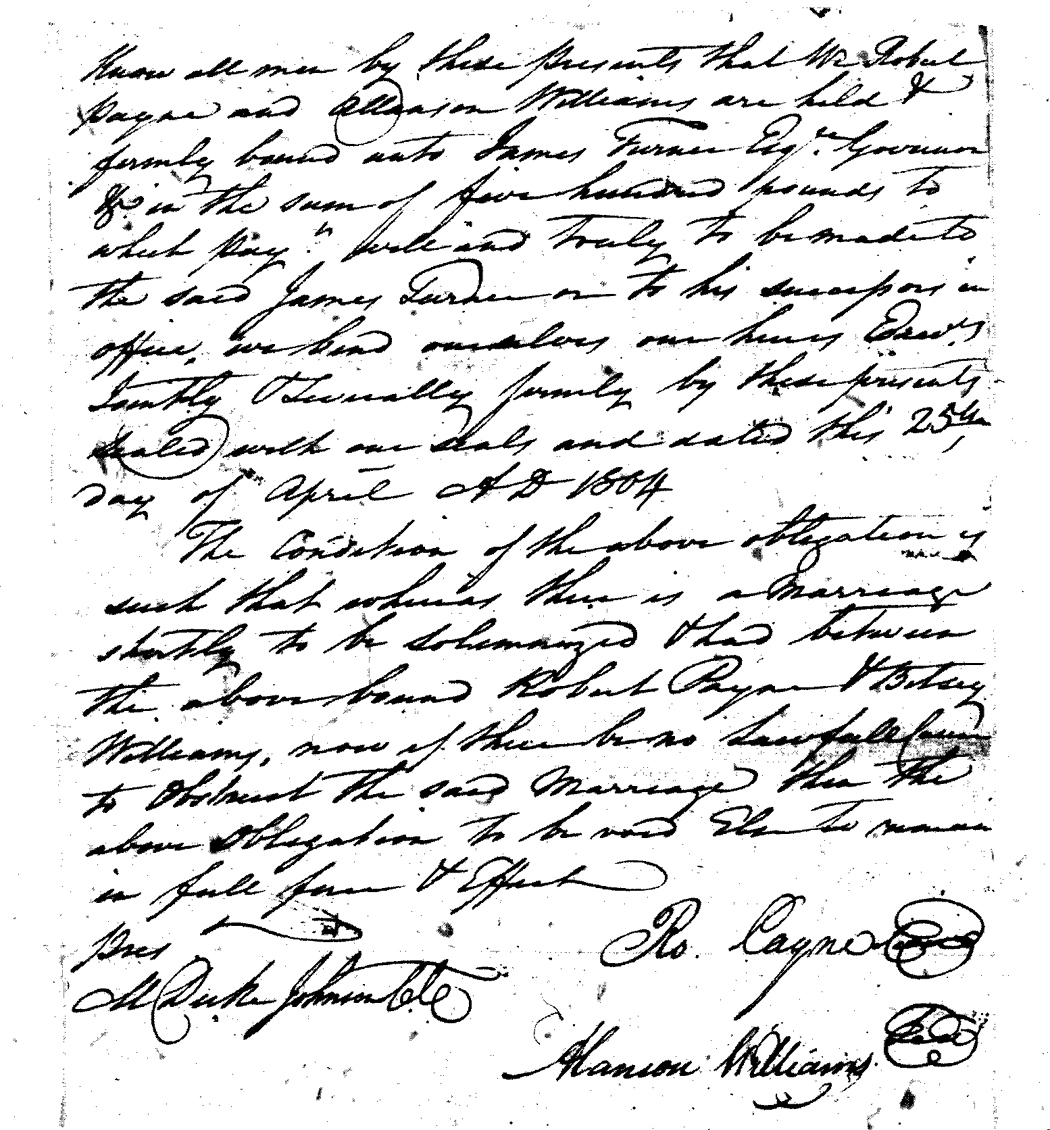 Know all men by these presents that We Robert
Payne and Allanson Williams are held &
firmly bound unto James Turner Esqre. Governor
&c in the sum of five hundred pounds to
which paymt. well and truly to be made to
the said James Turner or to his successors in
office, we bind ourselves our heirs Exec.s
Jointly & Severally firmly by these presents
Sealed with our seals and dated this 25th
day of April A D 1804
The Condition of the above obligation is
such that whereas there is a Marriage
shortly to be Solemnized & had between
the above bound Robert Payne & Betsey
Williams, now if there be no Lawfull Cause
to Obstruct the said Marriage then the
above Obligation to be void Else to remain
in full force & Effect
Pres
M Duke Johnson
Ro. Payne Seal
Alanson Williams Seal